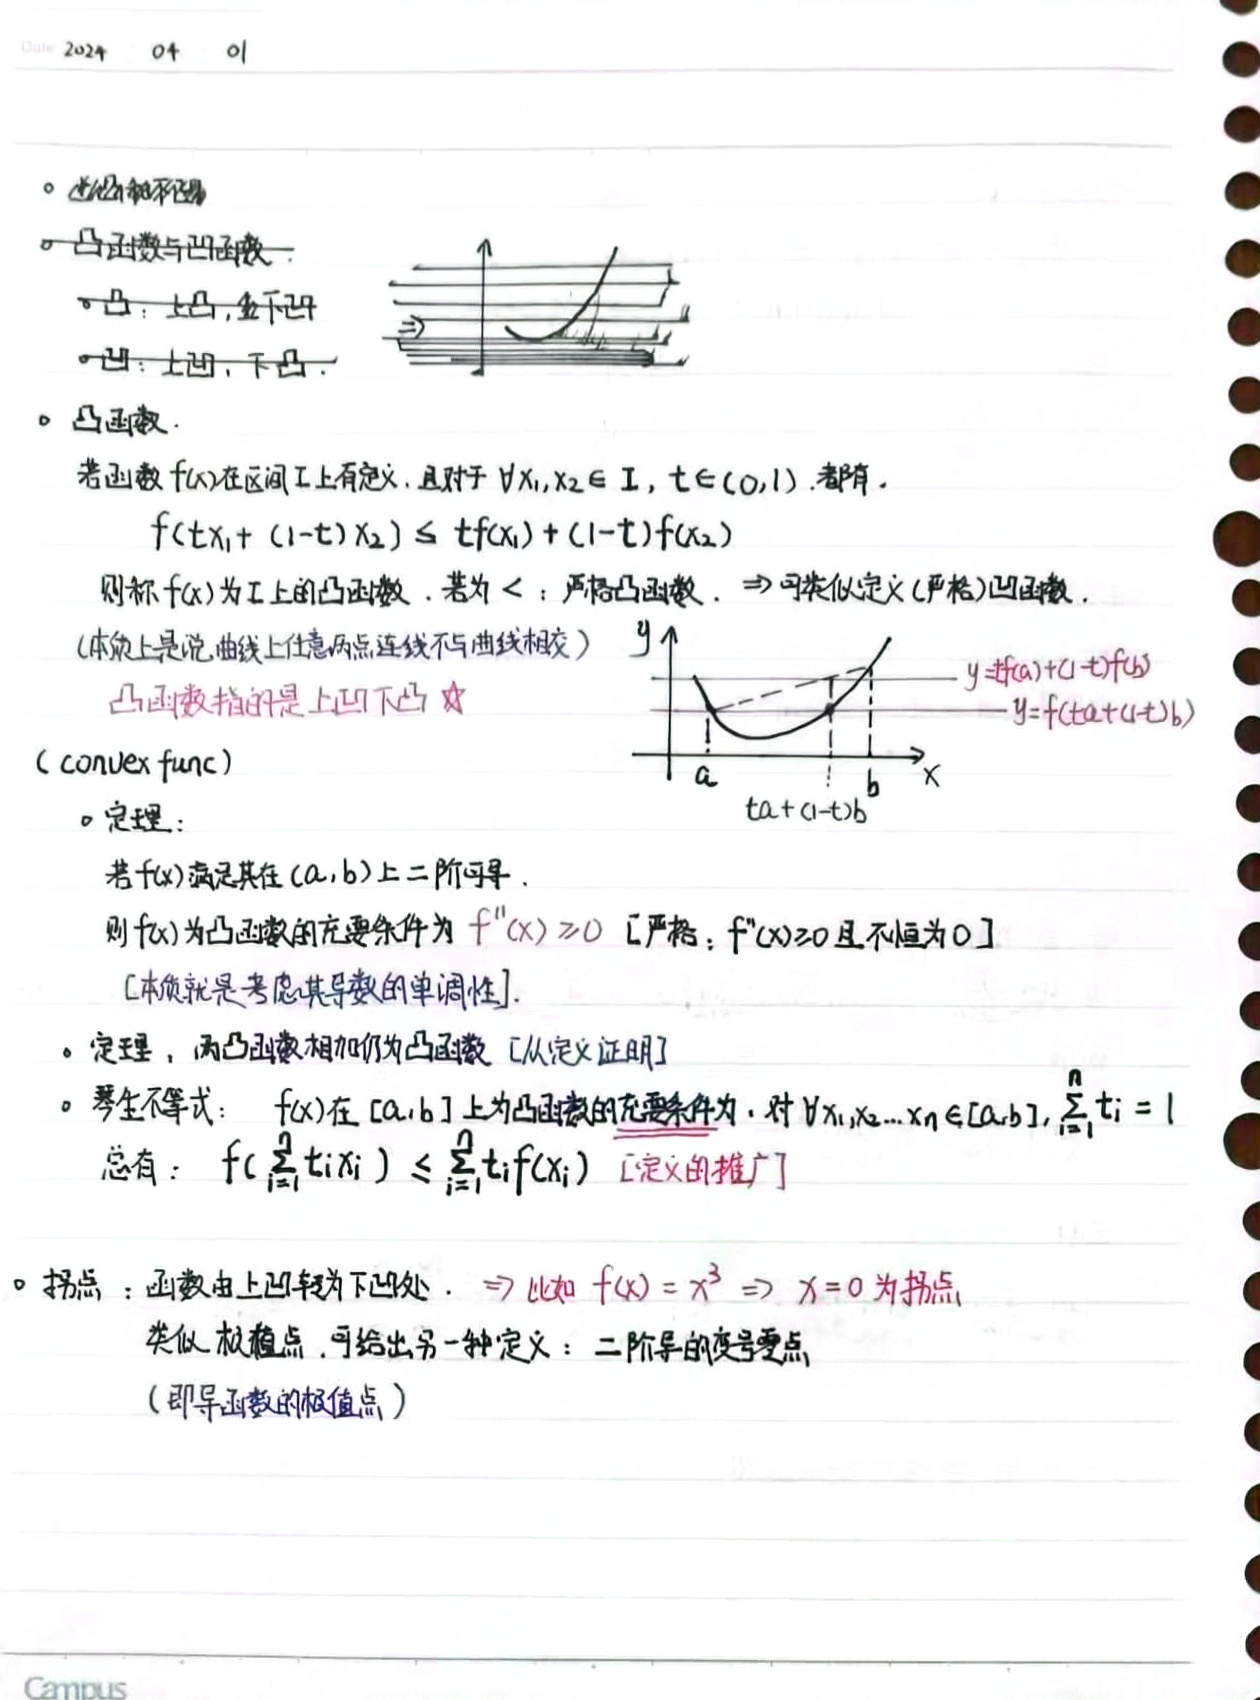 Date 2024 04 01
凸函数与凹函数.
凸：上凸，下凹
凹：上凹，下凸.
凸函数.
若函数 f(x)在区间 I 上有定义，且对于 ∀x₁,x₂∈ I, t∈(0,1).都有.
f(tx₁+ (1-t) x₂) ≤ tf(x₁) + (1-t)f(x₂)
则称 f(x) 为 I 上的凸函数. 若为 < : 严格凸函数. ⇒ 可类似定义(严格)凹函数.
(本质上是说曲线上任意两点连线不与曲线相交)
凸函数指的是上凹下凸 ☆
(convex func)
y
y=tf(a)+(1-t)f(b)
y=f(ta+(1-t)b)
a
b
x
ta+(1-t)b
定理：
若f(x)满足其在(a,b)上二阶可导.
则f(x)为凸函数的充要条件为 f''(x) ≥0 [严格：f''(x)≥0 且不恒为0]
[本质就是考虑其导数的单调性].
定理，两凸函数相加仍为凸函数 [从定义证明]
琴生不等式： f(x)在 [a,b] 上为凸函数的充要条件为，对 ∀x₁,x₂...xn∈[a,b], \sum_{i=1}^{n} ti = 1
总有： f( \sum_{i=1}^{n} tixi ) ≤ \sum_{i=1}^{n} tif(xi) [定义的推广]
拐点：函数由上凹转为下凹处. ⇒ 比如 f(x) = x³ ⇒ x=0 为拐点
类似极值点，可给出另一种定义：二阶导的变号零点
(即导函数的极值点)
Campus